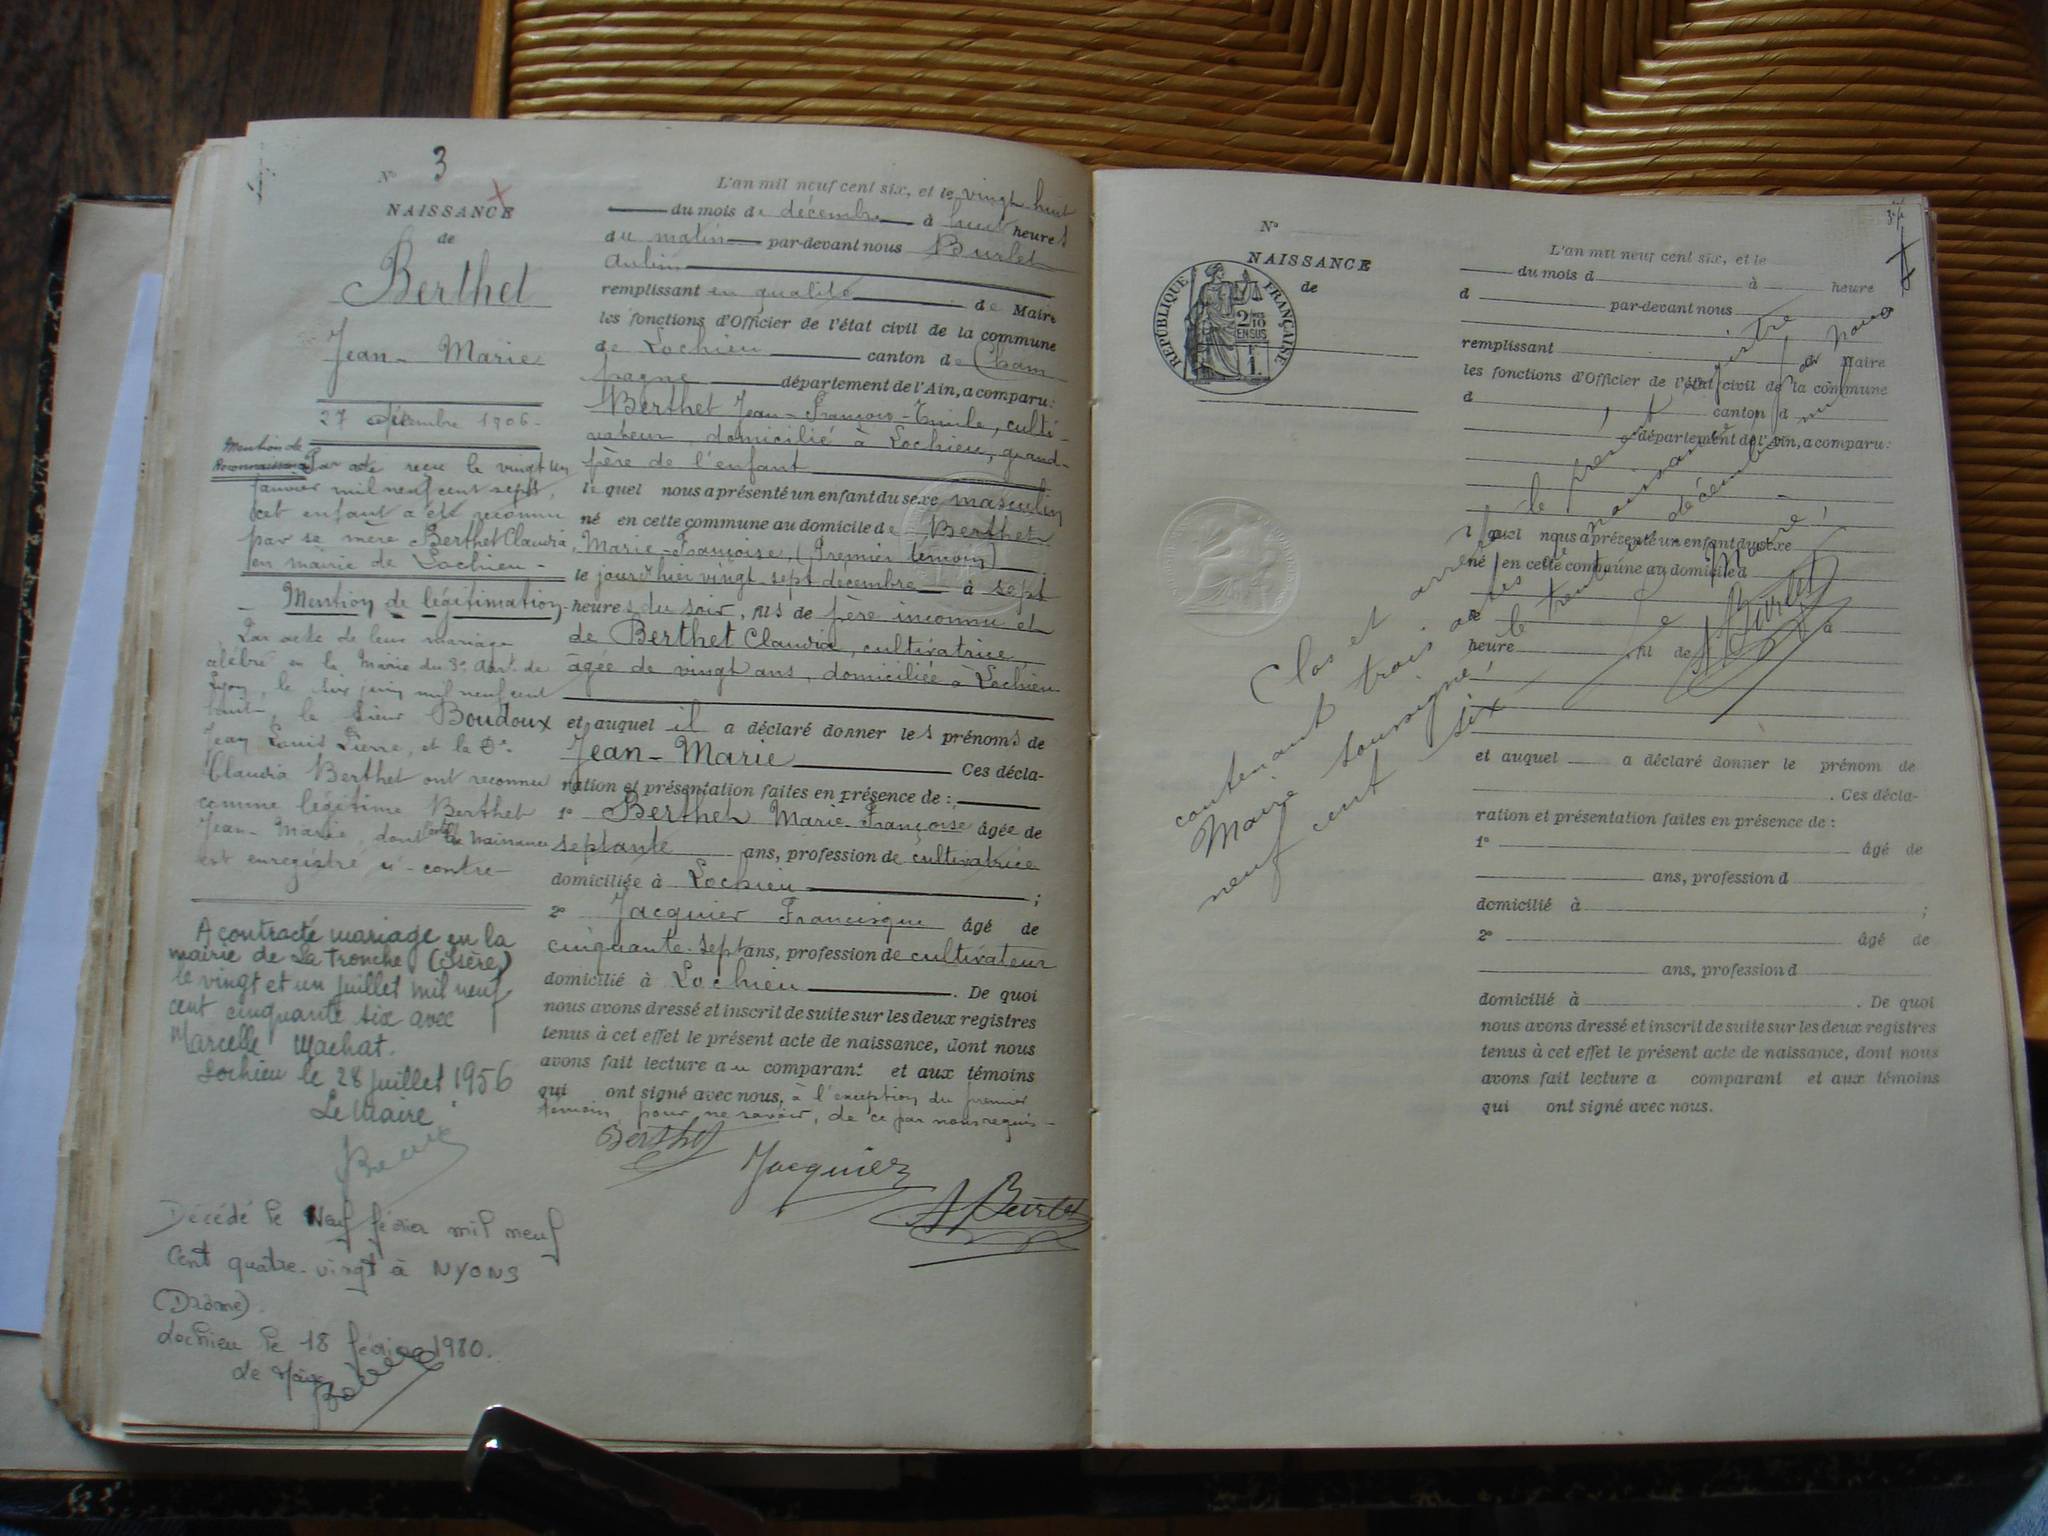 N° 3
NAISSANCE
de
Berthet
Jean-Marie
27 décembre 1906
Mention de
Reconnaissance Par acte reçu le vingt un
janvier mil neuf cent sept,
cet enfant a été reconnu
par sa mère Berthet Claudia,
en mairie de Lochieu -
Mention de légitimation
Par acte de leur mariage
célébré en la Mairie du 3e Arrt de
Lyon, le six juin mil neuf cent
huit, le sieur Boudoux
Jean Louis Pierre, et la De
Claudia Berthet ont reconnu
comme légitime Berthet
Jean-Marie, dont l'acte de naissance
est enregistré ci-contre -
A contracté mariage en la
mairie de La Tronche (Isère)
le vingt et un juillet mil neuf
cent cinquante six avec
Marcelle Machat.
Lochieu le 28 juillet 1956
Le Maire
Décédé le Neuf février mil neuf
cent quatre-vingt à NYONS
(Drôme).
Lochieu le 18 février 1980.
Le Maire
L'an mil neuf cent six, et le vingt huit
du mois de décembre à huit heures
du matin par-devant nous Burlet
Aubin
remplissant en qualité de Maire
les fonctions d'Officier de l'état civil de la commune
de Lochieu canton de Cham
pagne département de l'Ain, a comparu:
Berthet Jean-François-Emile, culti-
vateur, domicilié à Lochieu, grand-
père de l'enfant
lequel nous a présenté un enfant du sexe masculin
né en cette commune au domicile de Berthet
Marie-Françoise, (Premier témoin)
le jour d'hier vingt-sept décembre à sept
heures du soir, fils de père inconnu et
de Berthet Claudia, cultivatrice
âgée de vingt ans, domiciliée à Lochieu
et auquel il a déclaré donner les prénoms de
Jean-Marie Ces décla-
ration et présentation faites en présence de :
1° Berthet Marie-Françoise âgée de
septante ans, profession de cultivatrice
domiciliée à Lochieu ;
2° Jacquier Francisque âgé de
cinquante-sept ans, profession de cultivateur
domicilié à Lochieu . De quoi
nous avons dressé et inscrit de suite sur les deux registres
tenus à cet effet le présent acte de naissance, dont nous
avons fait lecture au comparant et aux témoins
qui ont signé avec nous, à l'exception du premier
témoin, pour ne savoir, de ce par nous requis -
Berthet
Jacquier
A Burlet
N°
NAISSANCE
de
RÉPUBLIQUE FRANÇAISE
2/10
EN SUS
1
L'an mil neuf cent six, et le
du mois d à heure
d par-devant nous
remplissant de Maire
les fonctions d'Officier de l'état civil de la commune
d canton d
département de l'Ain, a comparu:
l quel nous a présenté un enfant du sexe
né en cette commune au domicile d
le à
heure , fil de
et auquel a déclaré donner le prénom de
. Ces décla-
ration et présentation faites en présence de :
1° âgé de
ans, profession d
domicilié à ;
2° âgé de
ans, profession d
domicilié à . De quoi
nous avons dressé et inscrit de suite sur les deux registres
tenus à cet effet le présent acte de naissance, dont nous
avons fait lecture a comparant et aux témoins
qui ont signé avec nous.
Clos et arrêté le présent registre
contenant trois actes de naissance par nous
Maire soussigné, le trente un décembre mil
neuf cent six
Le Maire
A Burlet